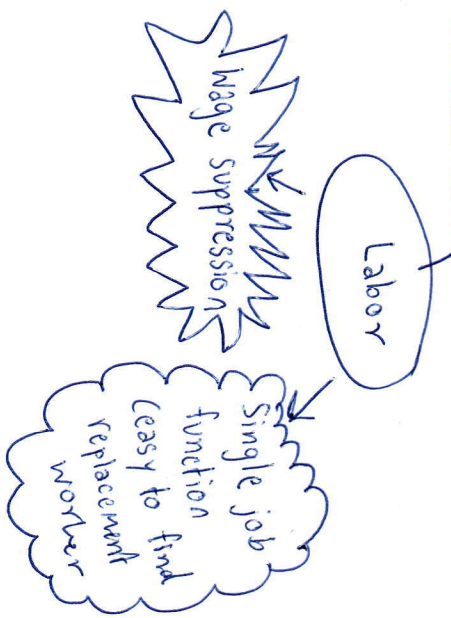 Labor
Wage suppression
Single job
function
(easy to find
replacement
worker